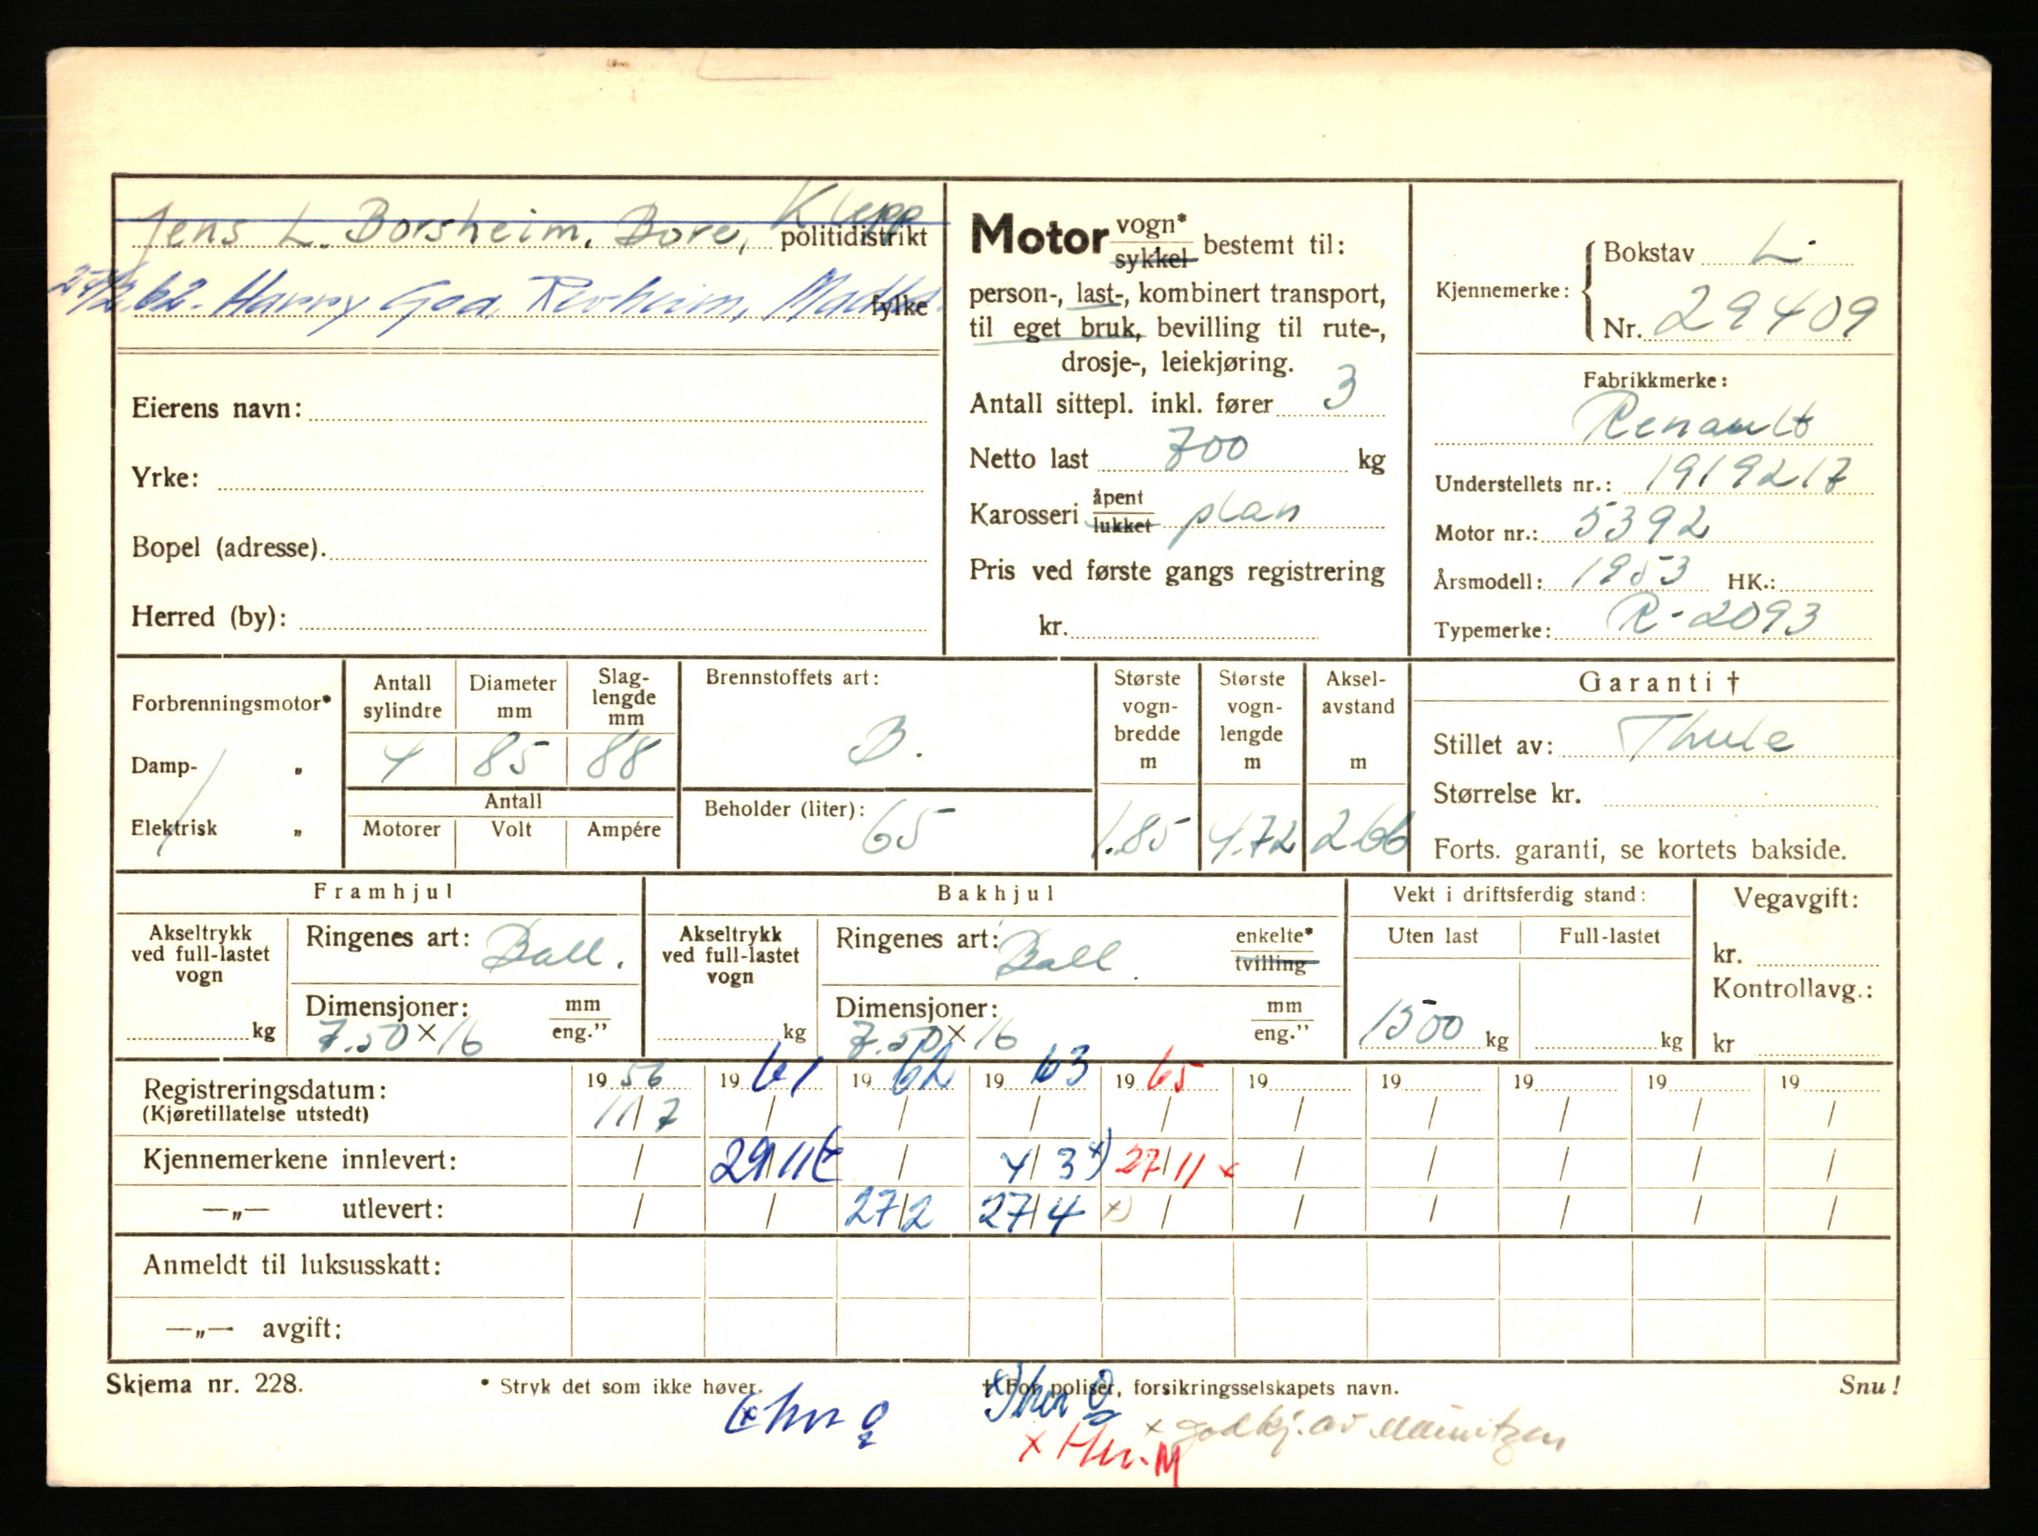 Jens L. Borsheim, Bore, Klepp politidistrikt
27/2 62. Harry God. Revheim, Madla fylke
Eierens navn:
Yrke:
Bopel (adresse).
Herred (by):
Motor vogn* sykkel bestemt til:
person-, last-, kombinert transport,
til eget bruk, bevilling til rute-,
drosje-, leiekjøring.
Antall sittepl. inkl. fører 3
Netto last 700 kg
Karosseri åpent lukket plan
Pris ved første gangs registrering
kr.
Kjennemerke: Bokstav L
Nr. 29409
Fabrikkmerke:
Renault
Understellets nr.: 1919217
Motor nr.: 5392
Årsmodell: 1953 HK.:
Typemerke: R-2093
Forbrenningsmotor*
Damp- „
Elektrisk „
Antall sylindre
Diameter mm
Slag-lengde mm
4 85 88
Antall
Motorer Volt Ampére
Brennstoffets art:
B.
Beholder (liter):
65
Største vogn-bredde m
1.85
Største vogn-lengde m
4.72
Aksel-avstand m
266
Garanti †
Stillet av: Thule
Størrelse kr.
Forts. garanti, se kortets bakside.
Framhjul
Akseltrykk ved full-lastet vogn
kg
Ringenes art: Ball.
Dimensjoner: mm
7.50 × 16 eng.”
Bakhjul
Akseltrykk ved full-lastet vogn
kg
Ringenes art: Ball. enkelte* tvilling
Dimensjoner: mm
7.50 × 16 eng.”
Vekt i driftsferdig stand:
Uten last Full-lastet
1500 kg kg
Vegavgift:
kr.
Kontrollavg.:
kr
Registreringsdatum: 19 56 19 61 19 62 19 63 19 65 19 19 19 19 19
(Kjøretillatelse utstedt) 11/7 / / / / / / / / /
Kjennemerkene innlevert: / 29/11 / 4/3 x) 27/11 x / / / / /
—„— utlevert: / / 27/2 27/4 x) / / / / / /
Anmeldt til luksusskatt:
—„— avgift:
Skjema nr. 228.
* Stryk det som ikke høver.
† For poliser, forsikringsselskapets navn.
Snu!
x godkj. av